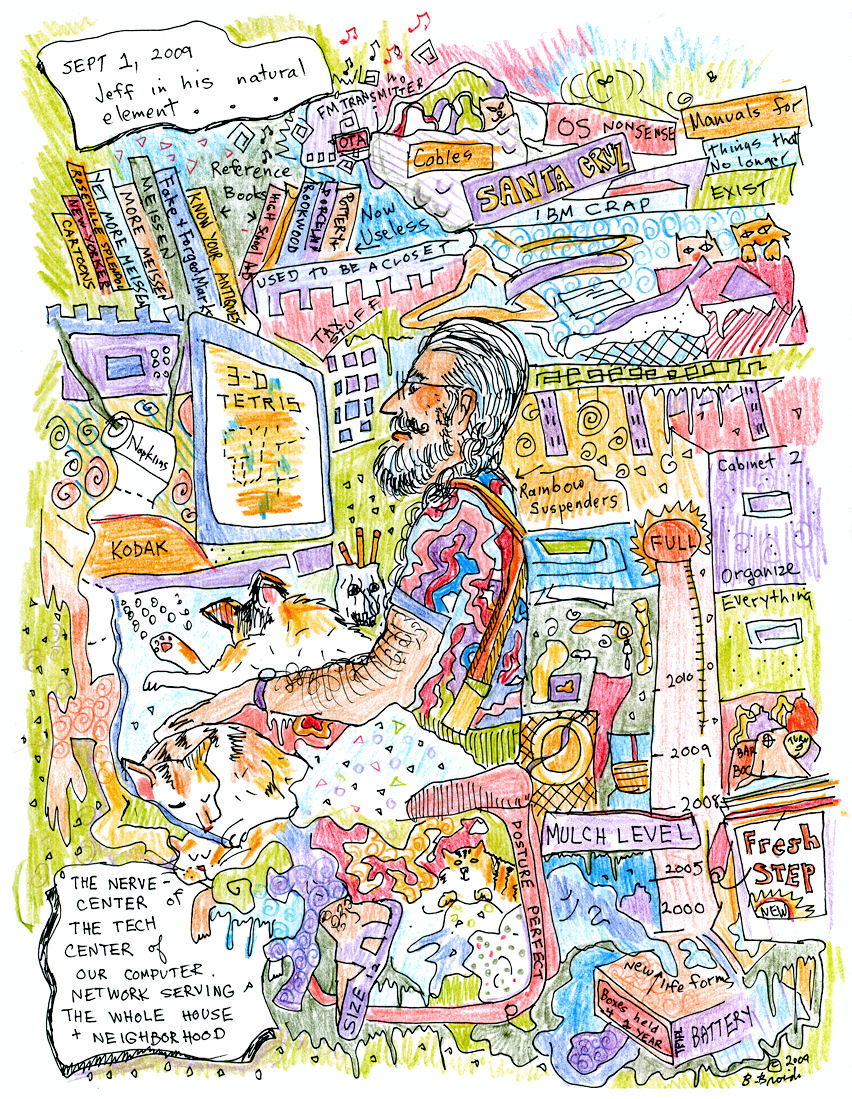 SEPT 1, 2009
Jeff in his natural
element . . . .
FM TRANSMITTER
OTA
Cobles
OS NONSENSE
Manuals for
Things that
No longer
EXIST
SANTA CRUZ
IBM CRAP
Reference
Books
ROSEVILLE SPLENDOR
NEW YORKER
CARTOONS
YET MORE MEISSEN
MORE MEISSEN
MEISSEN
Fake & Forged Marks
KNOW YOUR ANTIQUES
ROOKWOOD
PORCELAIN
POTTERY
Now
Useless
USED TO BE A CLOSET
TAX
STUFF
3-D
TETRIS
Napkins
KODAK
Rainbow
Suspenders
Cabinet 2
Organize
Everything
FULL
2010
2009
2008
2005
2000
MULCH LEVEL
BAR
BOC
TURN
Fresh
STEP
NEW
POSTURE PERFECT
SIZE 12
New life forms
Boxes held
4 a YEAR
BATTERY
THE NERVE-
CENTER of
THE TECH
CENTER of
OUR COMPUTER.
NETWORK SERVING
THE WHOLE HOUSE
+ NEIGHBORHOOD
© 2009